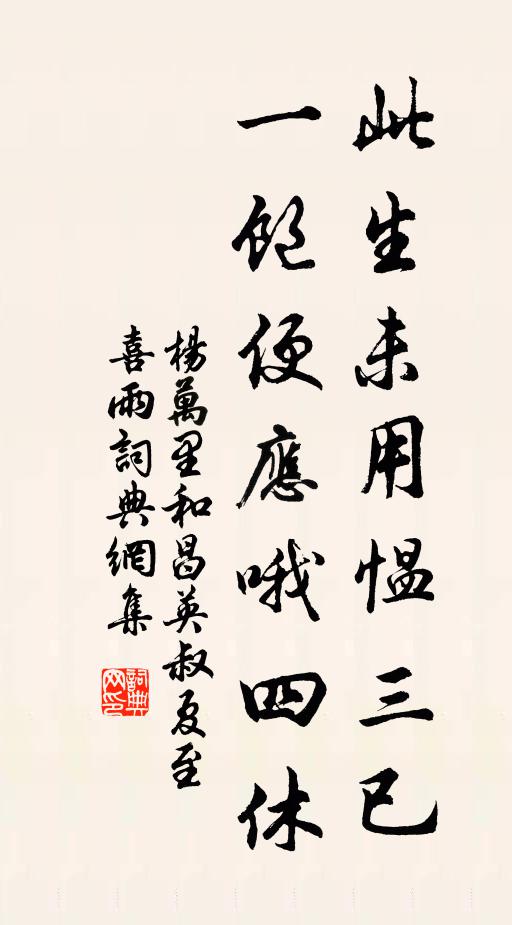 此生未用愠三已
一飽便應哦四休
楊萬里和昌英叔夏至
喜雨詞典網集
詞典網印